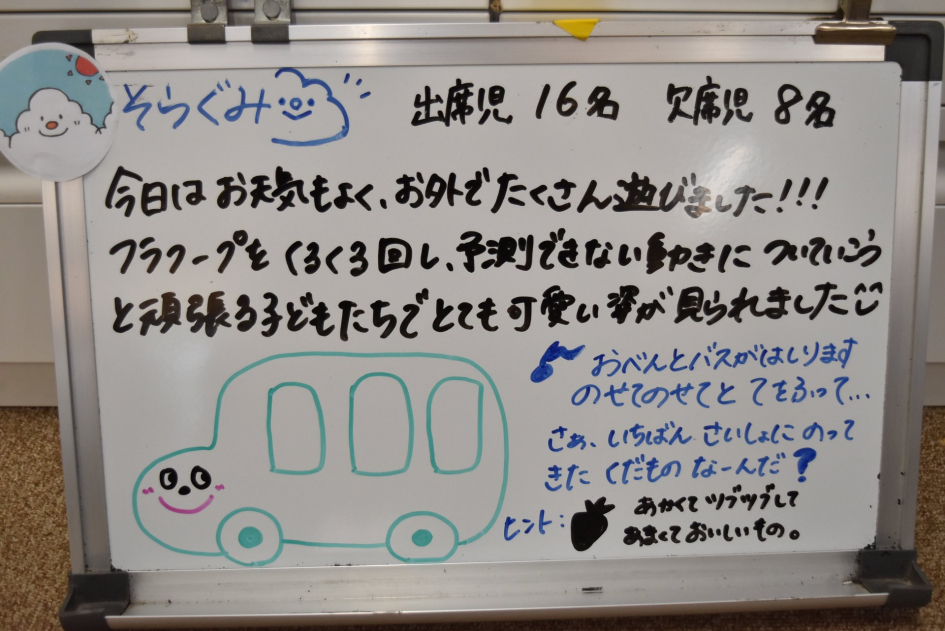 そらぐみ 出席児 16名 欠席児 8名
今日はお天気もよく、お外でたくさん遊びました!!!
フラフープをくるくる回し、予測できない動きについていこう
と頑張る子どもたちでとても可愛い姿が見られました
♪ おべんとバスがはしります
のせてのせてと てをふって...
さぁ、いちばん さいしょに のって
きた くだもの なーんだ?
ヒント: あかくて ツブツブして
あまくて おいしいもの。